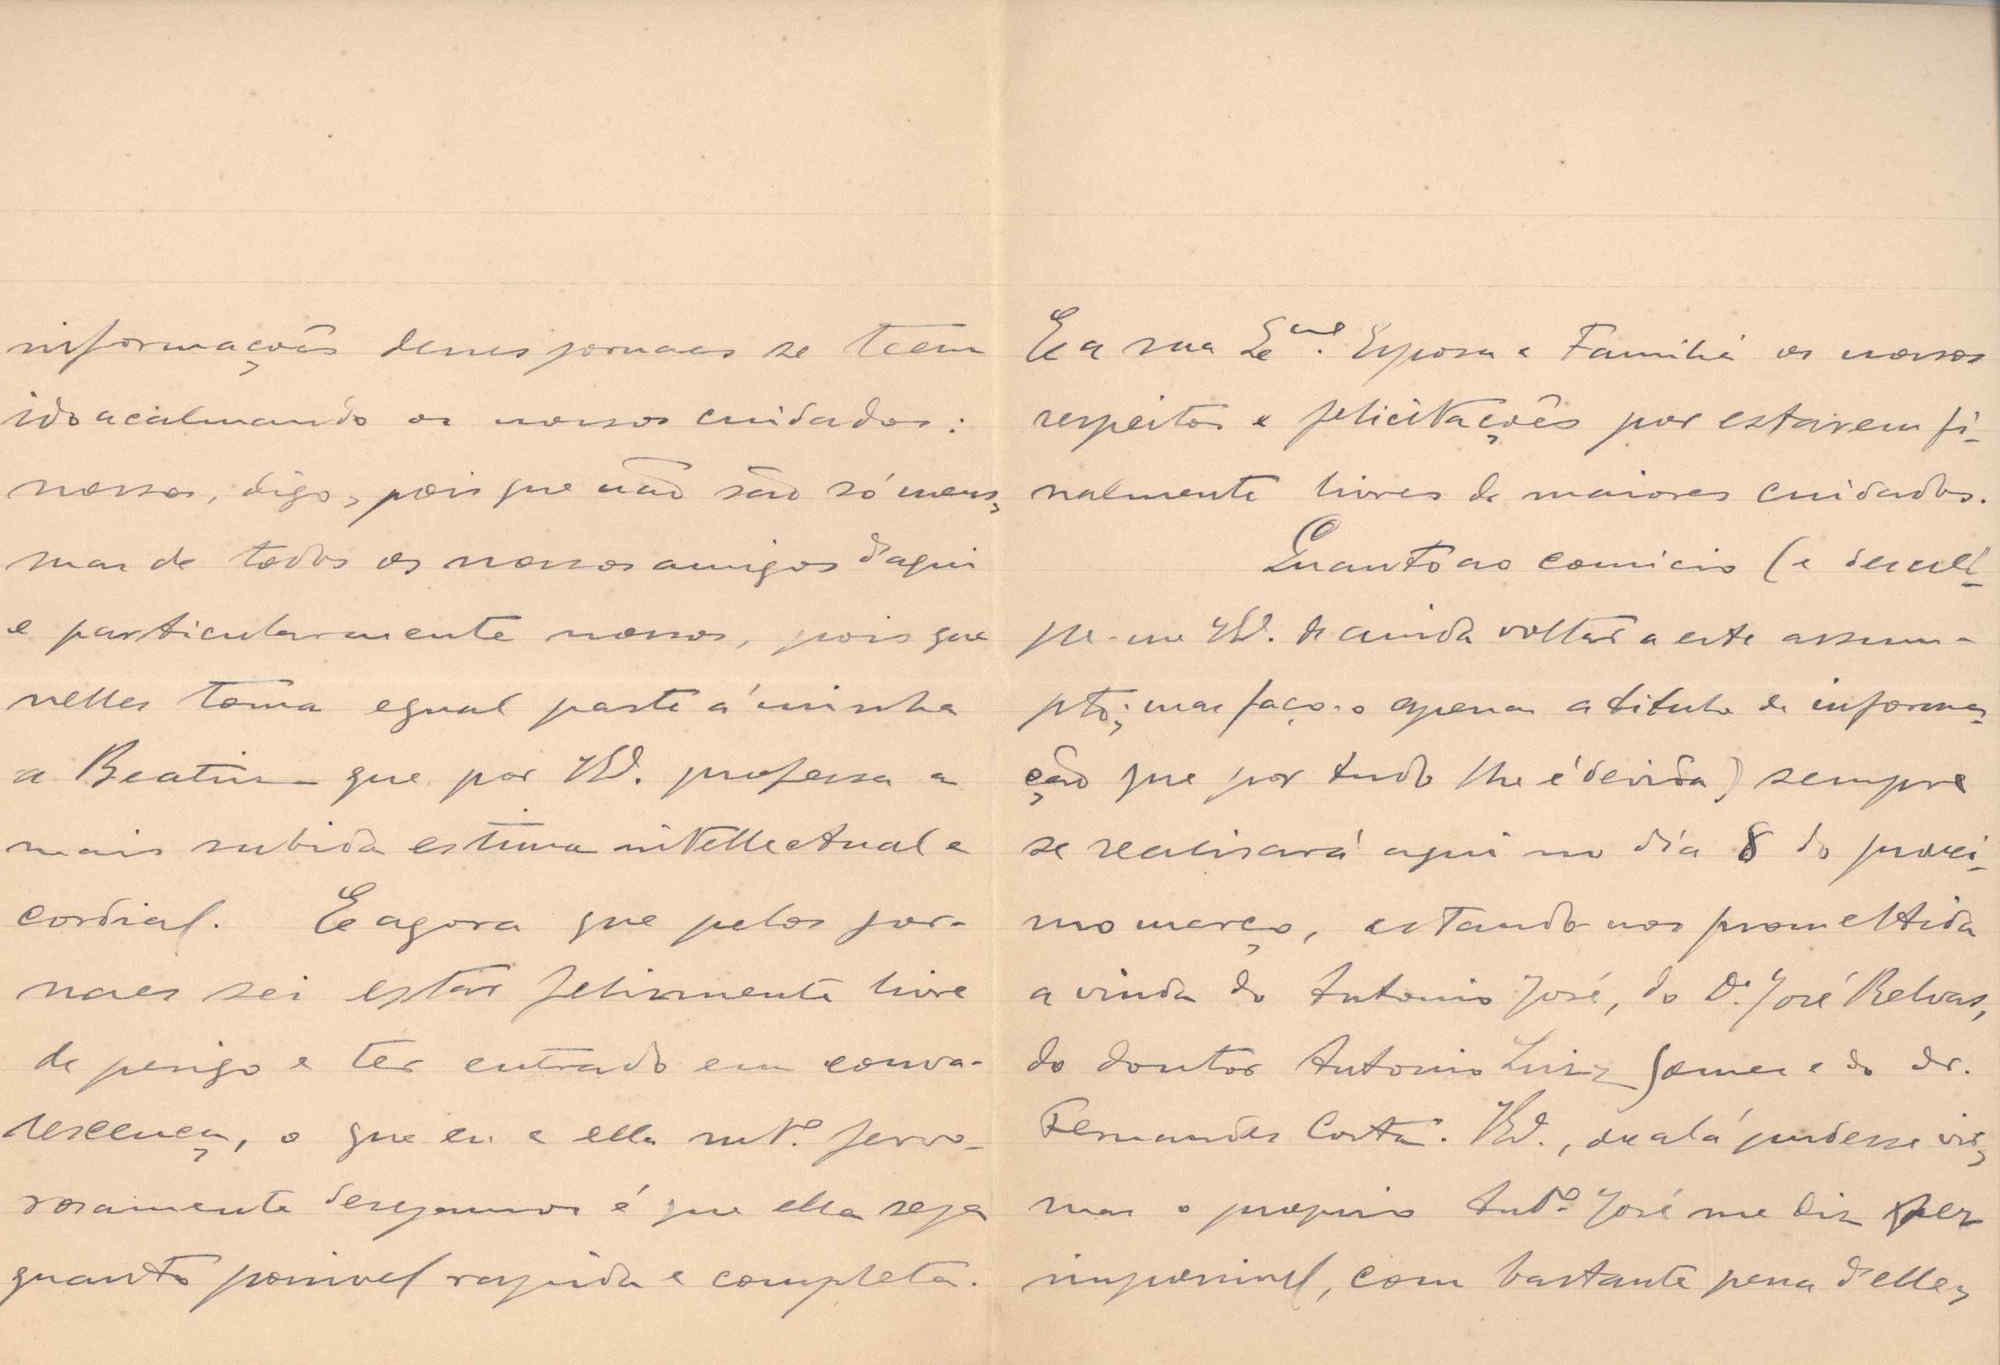 informações desses jornaes se teem
ido acalmando os nossos cuidados:
nossos, digo, pois que não são só meus,
mas de todos os nossos amigos d'aqui
e particularmente nossos, pois que
nelles toma egual parte á minha
a Beatriz que por V. professa a
mais subida estima intellectual e
cordial. E agora que pelos jor-
naes sei estar felizmente livre
de perigo e ter entrado em conva-
lescença, o que eu e ella mt.º fervo-
rosamente desejamos é que ella seja
quanto possivel rapida e completa.
E a sua Ex.ma Esposa e Familia os nossos
respeitos e felicitações por estarem fi-
nalmente livres de maiores cuidados.
Quanto ao comicio (e descul-
pe-me V. de ainda voltar a este assum-
pto; mas faço-o apenas a titulo de informa-
ção que por tudo lhe é devida) sempre
se realisará aqui no dia 8 do proxi-
mo março, estando-nos promettida
a vinda do Antonio José, do D.r José Relvas,
do doutor Antonio Luiz Gomes e do dr.
Fernandes Costa. V., oxalá pudesse vir,
mas o proprio Ant.º José me diz ser
impossivel, com bastante pena d'elle,